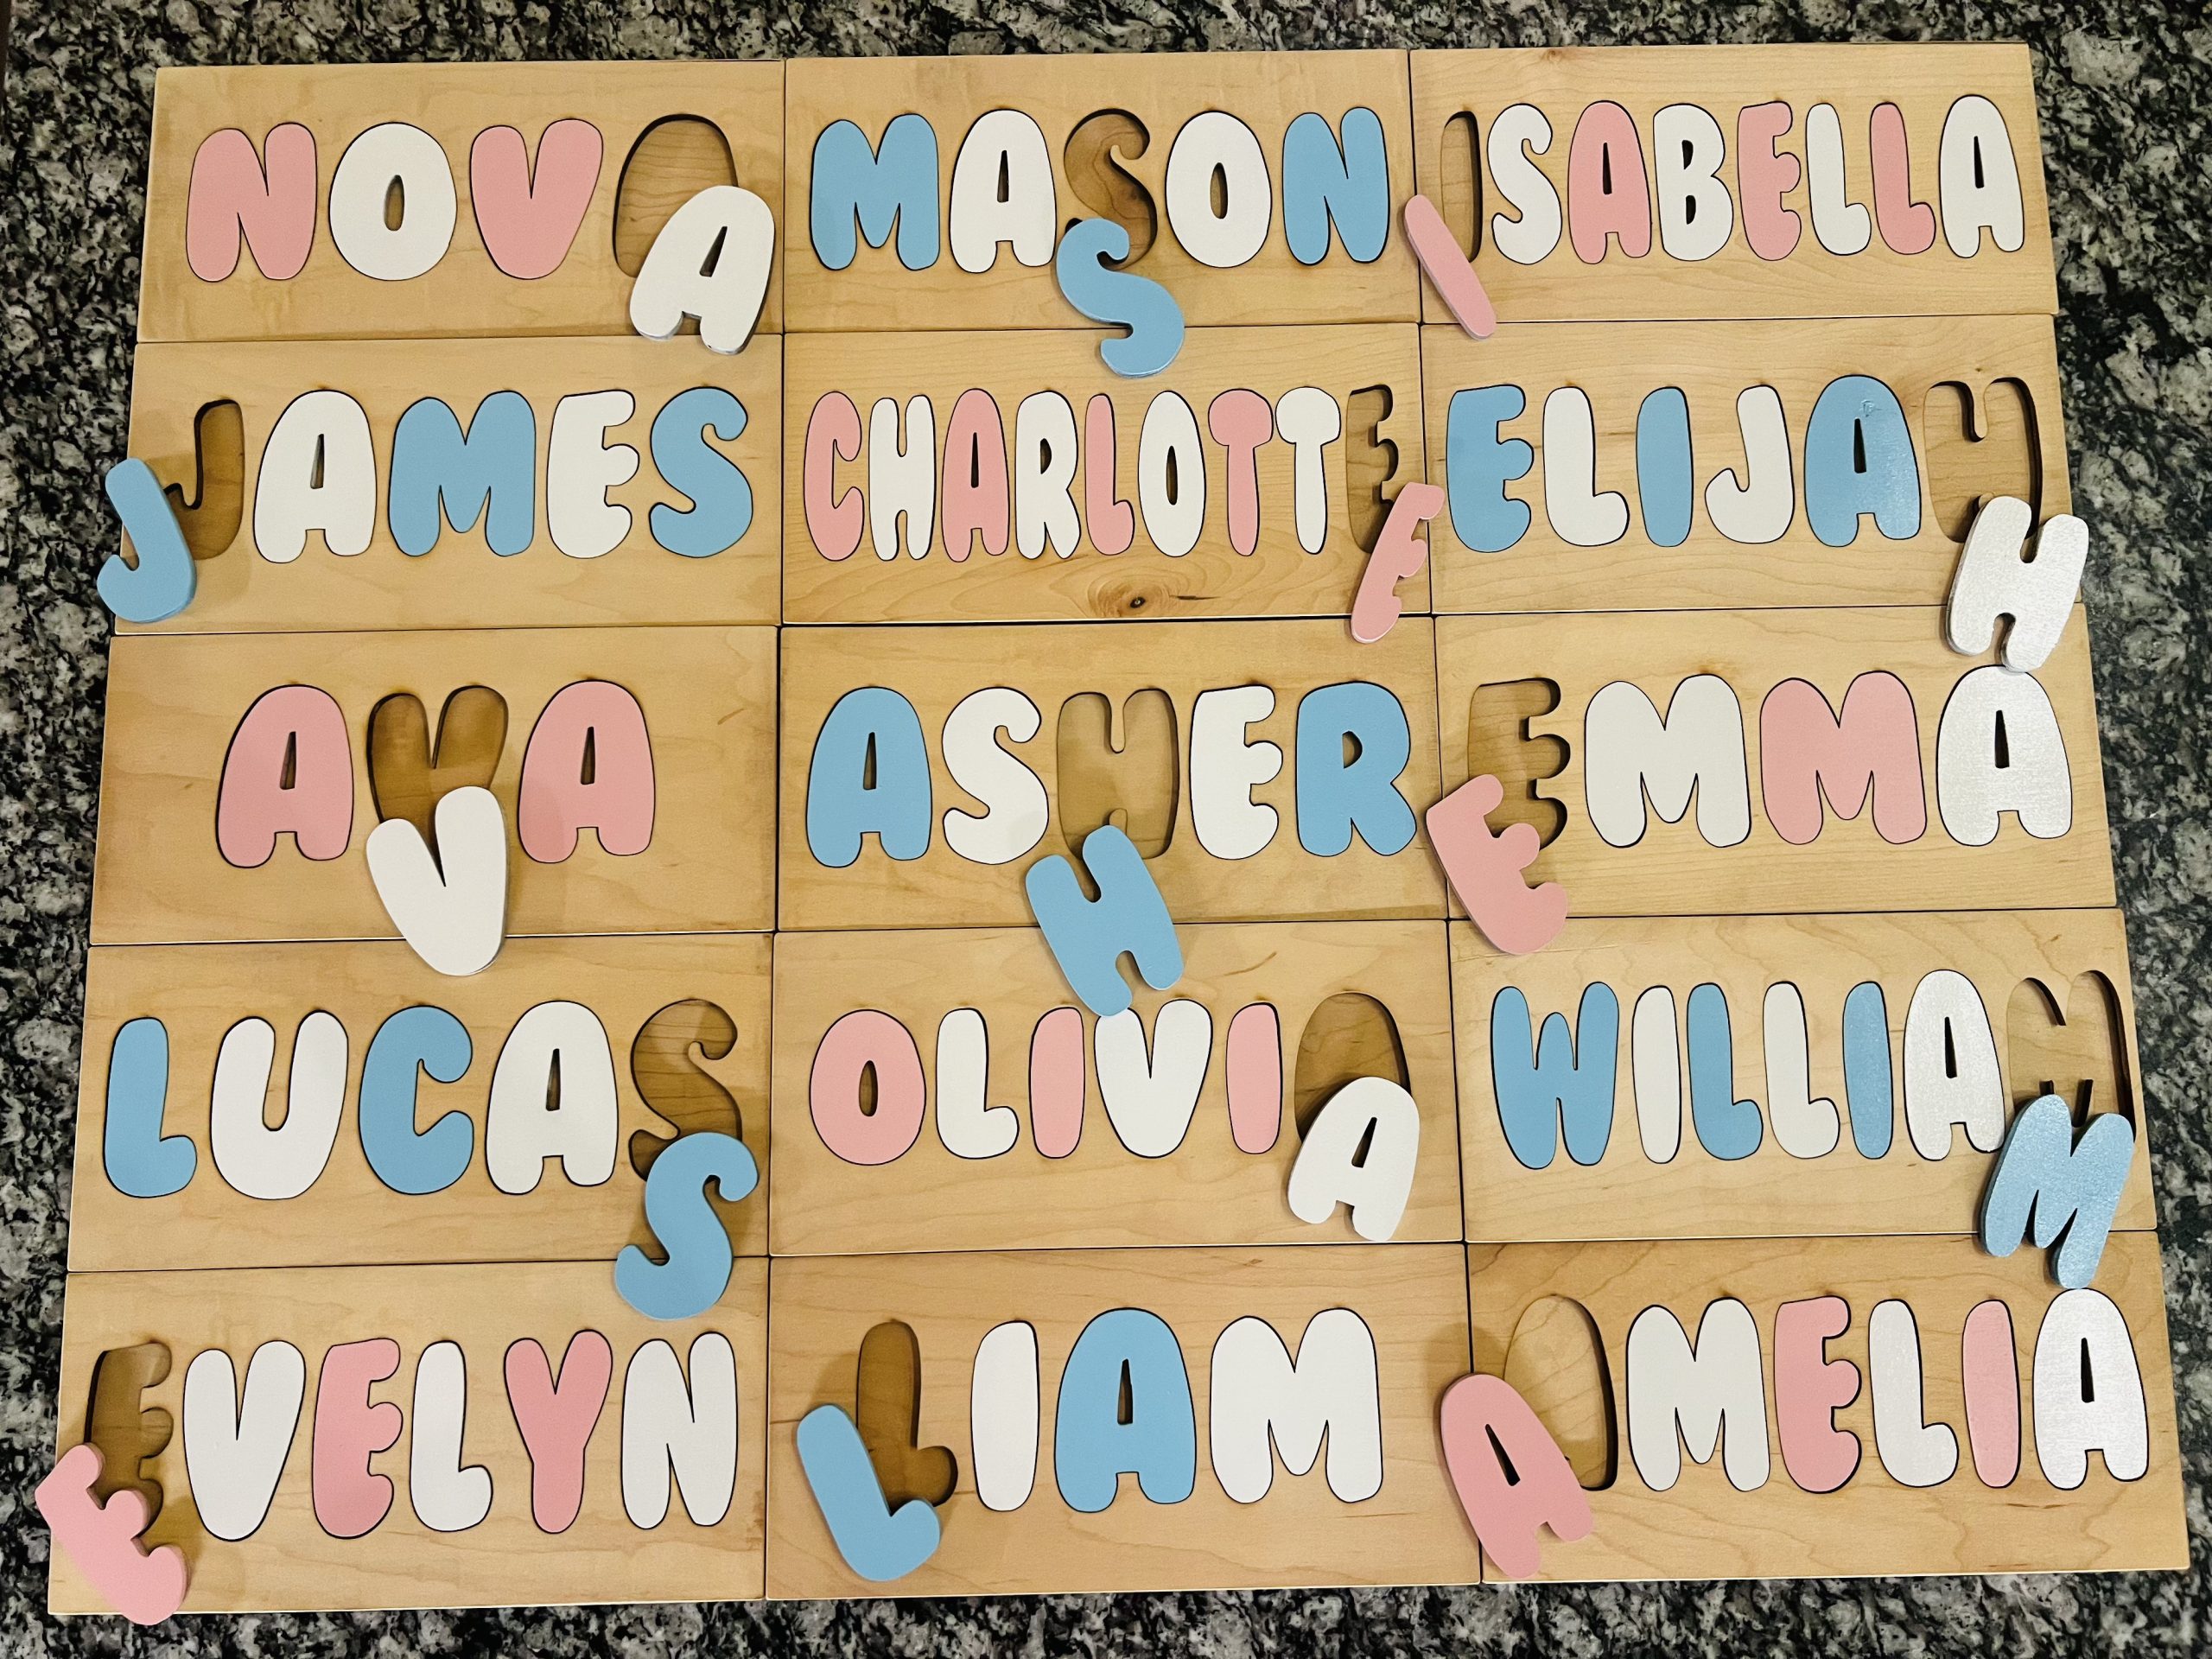 NOVA MASON ISABELLA
JAMES CHARLOTTE ELIJAH
AVA ASHER EMMA
LUCAS OLIVIA WILLIAM
EVELYN LIAM AMELIA